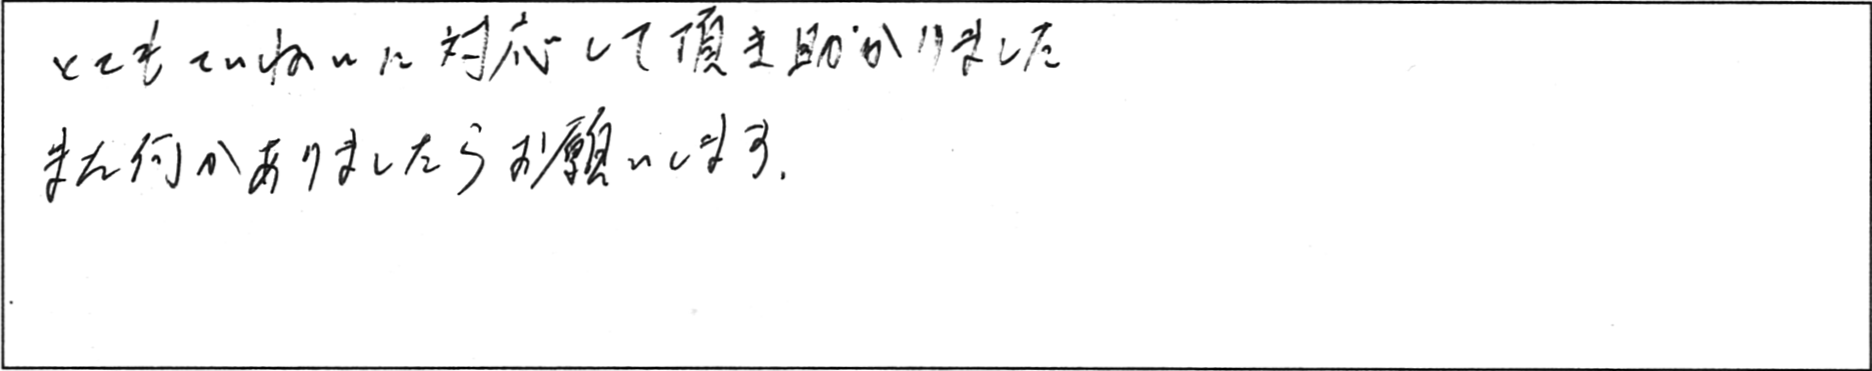 とてもていねいに対応して頂き助かりました
また何かありましたらお願いします.